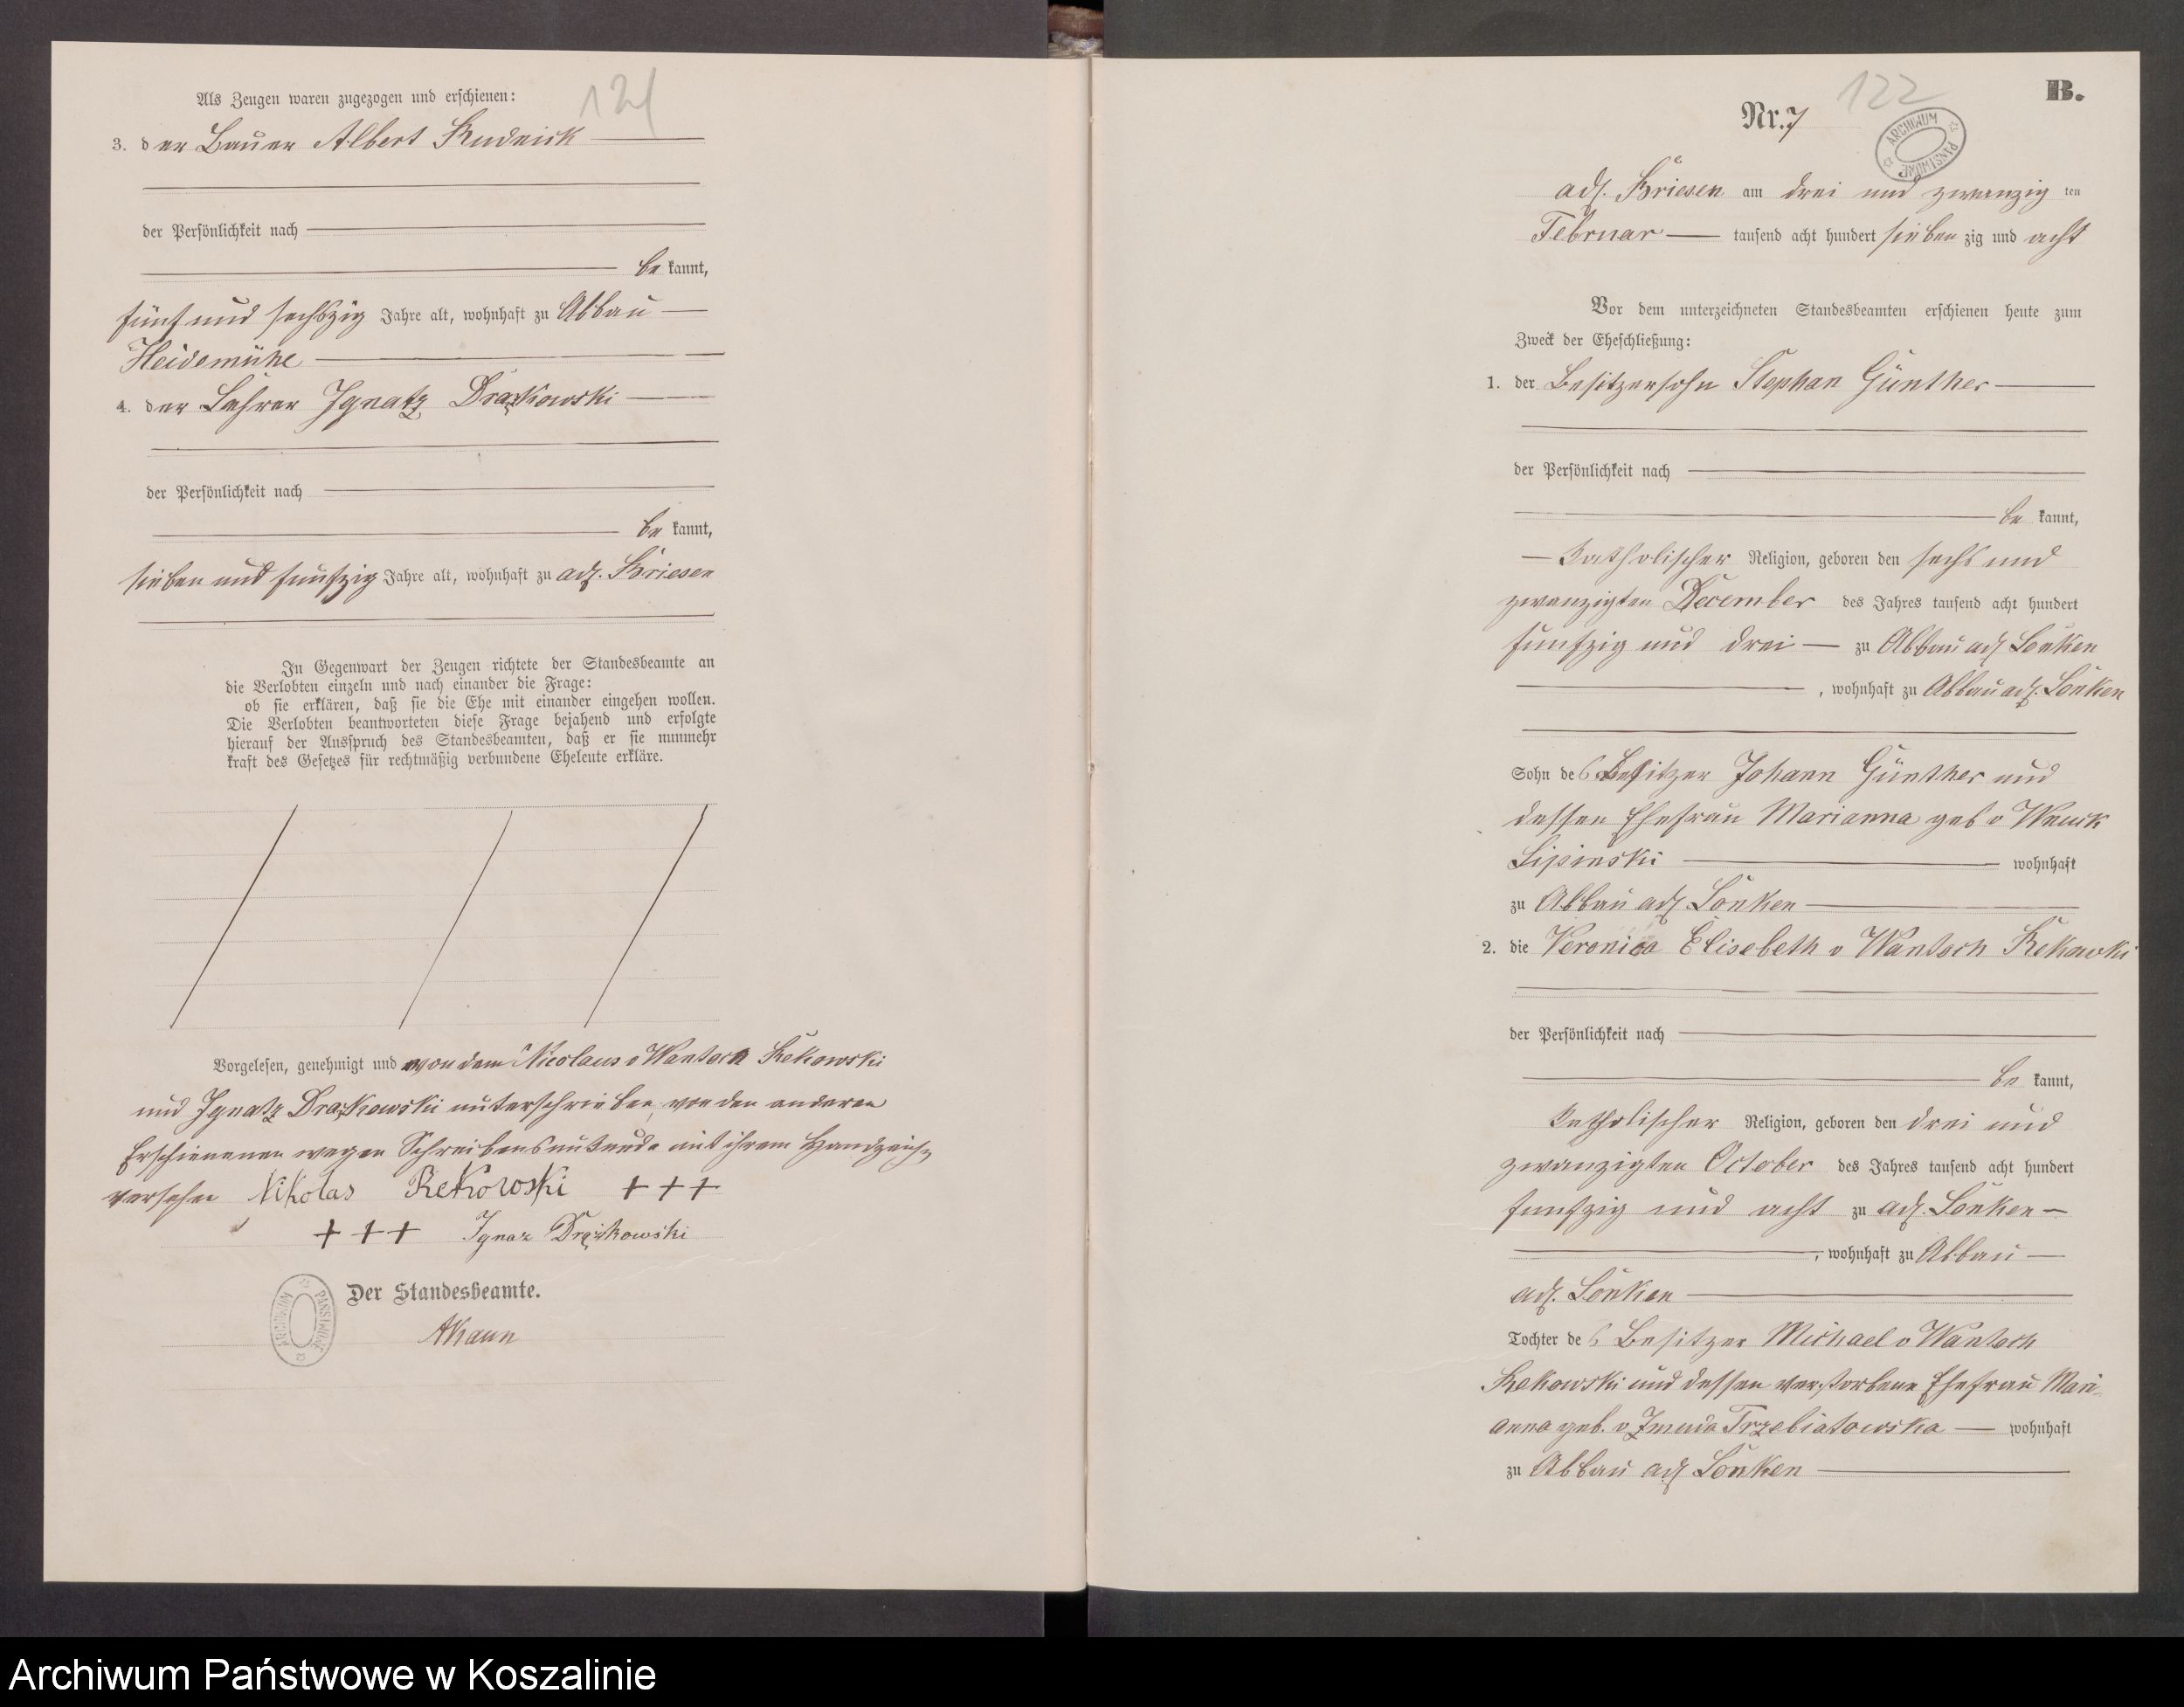 121
Als Zeugen waren zugezogen und erschienen:
3. der Bauer Albert Rudnick
der Persönlichkeit nach
be kannt,
fünf und sechszig Jahre alt, wohnhaft zu Abbau
Heidemühe
4. der Lehrer Ignatz Drążkowski
der Persönlichkeit nach
be kannt,
sieben und funfzig Jahre alt, wohnhaft zu adl. Briesen
In Gegenwart der Zeugen richtete der Standesbeamte an
die Verlobten einzeln und nach einander die Frage:
ob sie erklären, daß sie die Ehe mit einander eingehen wollen.
Die Verlobten beantworteten diese Frage bejahend und erfolgte
hierauf der Ausspruch des Standesbeamten, daß er sie nunmehr
kraft des Gesetzes für rechtmäßig verbundene Eheleute erkläre.
Vorgelesen, genehmigt und von dem Nicolaus v Wantoch Rekowski
und Ignatz Drążkowski unterschrieben, von den anderen
Erschienenen wegen Schreibensunkunde mit ihrem Handzeichen
versehen Nikolas Rekowski +++
+++ Ignaz Drążkowski
Der Standesbeamte.
ARCHIWUM PAŃSTWOWE
122
B.
Nr. 7
ARCHIWUM PAŃSTWOWE
adl. Briesen am drei und zwanzig ten
Februar tausend acht hundert sieben zig und acht
Vor dem unterzeichneten Standesbeamten erschienen heute zum
Zweck der Eheschließung:
1. der Besitzersohn Stephan Günther
der Persönlichkeit nach
be kannt,
Katholischer Religion, geboren den sechs und
zwanzigten December des Jahres tausend acht hundert
funfzig und drei zu Abbau adl Lonken
, wohnhaft zu Abbau adl. Lonken
Sohn des Besitzer Johann Günther und
dessen Ehefrau Marianna geb v Wnuck
Lipinski wohnhaft
zu Abbau adl. Lonken
2. die Veronica Elisebeth v Wantoch Rekowski
der Persönlichkeit nach
be kannt,
Katholischer Religion, geboren den drei und
zwanzigten October des Jahres tausend acht hundert
funfzig und acht zu adl. Lonken
, wohnhaft zu Abbau
adl. Lonken
Tochter des Besitzer Michael v Wantoch
Rekowski und dessen verstorbene Ehefrau Mari-
anna geb. v Trzebiatowska wohnhaft
zu Abbau adl Lonken
Archiwum Państwowe w Koszalinie